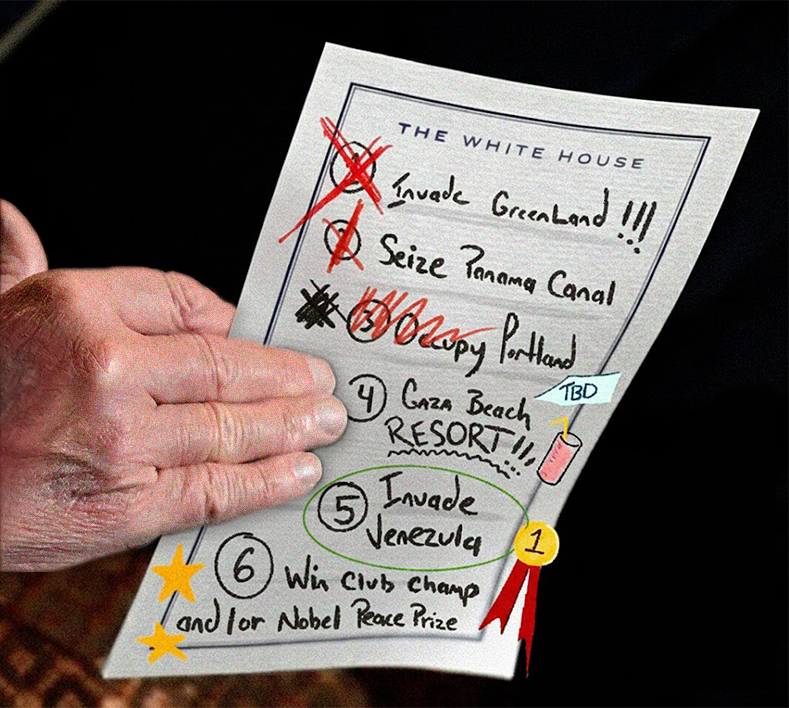 THE WHITE HOUSE
1 Invade Greenland !!!
2 Seize Panama Canal
3 Occupy Portland
TBD
4 Gaza Beach
RESORT!!!
5 Invade
Venezula
1
6 Win Club Champ
and/or Nobel Peace Prize